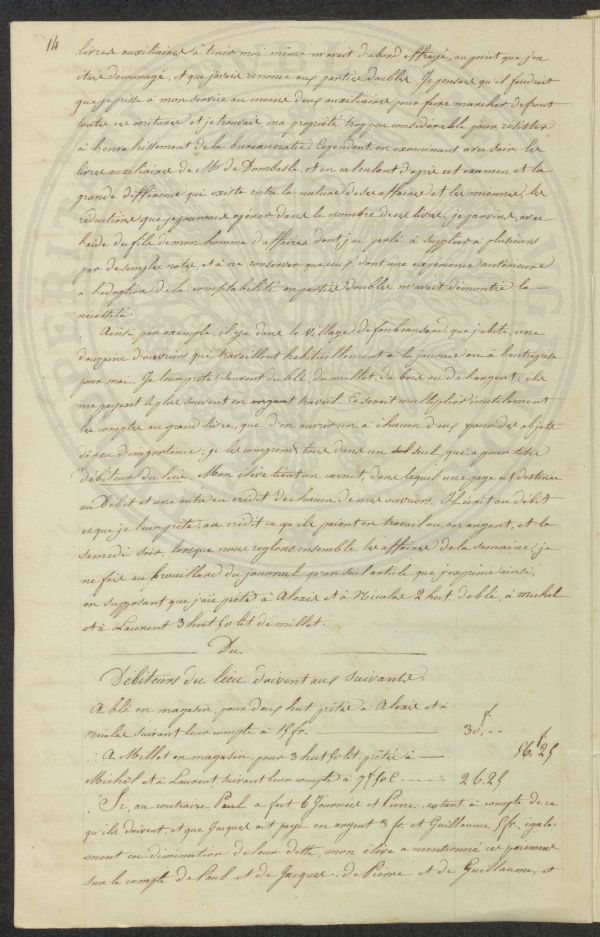 14
livres auxiliaires à tenir moi même m'avait d'abord effrayé, au point que j'en
étais découragé, et que j'avais renoncé aux parties doubles. Je pensais qu'il faudrait
que je prisse à mon service au moins deux auxiliaires pour faire marcher de front
toutes ces écritures et je trouvais ma propriété trop peu considérable pour résister
à l'envahissement de la bureaucratie. Cependant en examinant avec soin les
livres auxiliaires de Mr de Dombasle, et en calculant d'après cet examen et la
grande différence qui existe entre la nature de ses affaires et les miennes, les
réductions que je pourrais opérer dans le nombre de ces livres, je parvins, avec
l'aide du fils de mon homme d'affaires dont j'ai parlé à suppléer à plusieurs
par de simples notes, et à ne conserver que ceux dont une expérience antérieure
à l'adoption de la comptabilité en parties doubles m'avait démontré la
nécessité.
Ainsi par exemple, il y a dans le village de fonbeauzard que j'habite, une
douzaine d'ouvriers qui travaillent habituellement à la journée ou à l'entreprise
pour moi. Je leur prête souvent du blé, du millet, du bois ou de l'argent; ils
me payent le plus souvent en travail. Ce serait multiplier inutilement
les comptes au grand livre, que d'en ouvrir un à chacun d'eux pour des objets
de peu d'importance; je les comprends tous dans un seul, qui a pour titre
débiteurs du lieu. Mon élève tient un carnet, dans lequel une page est destinée
au Débit et une autre au crédit de chacun de mes ouvriers. Il écrit au débit
ce que je leur prête, au crédit ce qu'ils paient en travail ou en argent, et le
samedi soir, lorsque nous réglons ensemble les affaires de la semaine, je
ne fais au brouillard du journal qu'un seul article que j'exprime ainsi,
en supposant que j'aie prêté à Alexis et à Nicolas 2 hect. de blé, à Michel
et à Laurent 3 hect 50 lit de millet.
Du
Débiteurs du lieu doivent aux suivants.
A blé en magasin, pour deux hect prêtés à Alexis et à
Nicolas suivant leur compte à 15 fr. 30f, ..
56.f 25
A Millet en magasin, pour 3 hect 50 lit, prêtés à
Michel et à Laurent suivant leur compte à 7f 50c 26.25
Si, au contraire, Paul a fait 6 Journées et Pierre autant à compte de ce
qu'ils doivent, et que Jacques ait payé en argent 3 fr. et Guillaume 5 fr. égale
ment en diminution de leur dette, mon élève a mentionné ces paiemens
sur le compte de Paul et de Jacques, de Pierre et de Guillaume, et